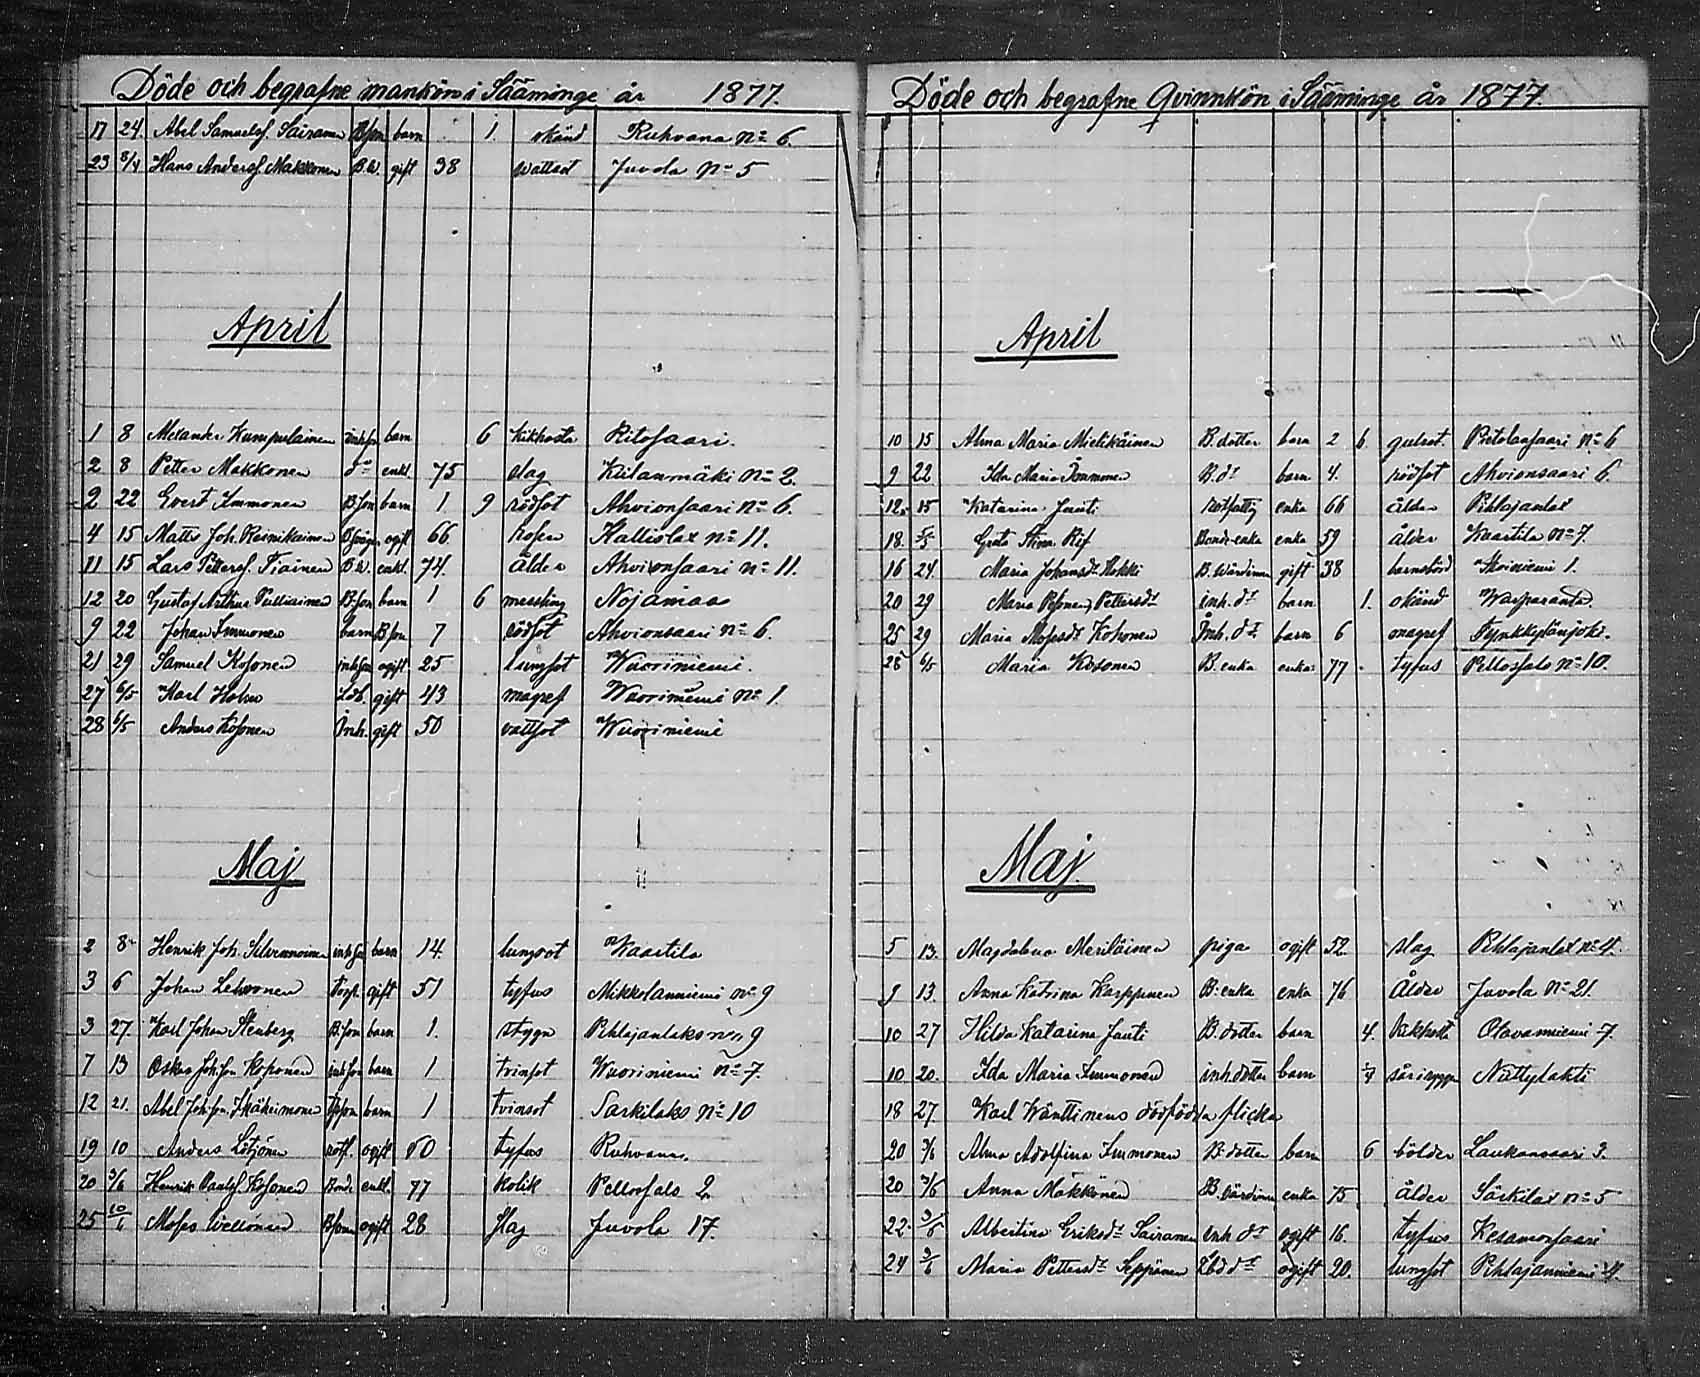 Döde och begrafne mankön i Sääminge år 1877.
17 24. Abel Samuelss. Sairanen Bson barn 1. okänd Ruhvana No 6.
23 8/4 Hans Anderss. Makkonen B.W. gift 38 wattsot Juvola No 5
April
1 8 Melander Kumpulainen inhson barn 6 kikhosta Ritosaari.
2 8 Petter Makkonen do enkl. 75 slag Kiilanmäki No 2.
2 22 Evert Immonen Bson barn 1 9 rödsot Ahvionsaari No 6.
4 15 Matts Joh. Reinikainen ogift 66 rosen Kallislax No 11.
11 15 Lars Petterss. Tiainen B.W. enkl. 74. ålder Ahvionsaari No 11.
12 20 Gustaf Arthur Pulliainen Bson barn 1 6 messling Nojamaa
9 22 Johan Immonen barn Bson 7 rödsot Ahvionsaari No 6.
21 29 Samuel Kosonen inhson ogift 25 lungsot Wuoriniemi.
27 6/5 Karl gift 43 magref Wuoriniemi No 1.
28 6/5 Anders Kosonen Inh. gift 50 vattsot Wuoriniemi
Maj
2 8 Henrik Joh. Silvennoinen inhson barn 14. lungsot Kaartila
3 6 Johan Lehvonen torp. gift 51 tyfus Mikkolanniemi No 9
3 27. Karl Johan Stenberg Bson barn 1. stygn Pihlajanlaks No 9
7 13 Oskar Johsson Koponen inhson barn 1 trinsot Wuoriniemi No 7.
12 21. Abel Johsson Ikäheimonen barn 1 tvinsot Särkilaks No 10
19 10 Anders Lötjönen rotf. ogift 60 tyfus Ruhvana.
20 3/6 Henrik Paulss. Kosonen Bonde enkl. 77 kolik Pellossalo 2.
25 10/6 Moses Bson ogift 28 slag Juvola 17.
Döde och begrafne Qvinnkön i Sääminge år 1877.
April
10 15 Alma Maria Mielikäinen B. dotter barn 2 6. gulsot. Pietolansaari No 6
9 22 Ida Maria Immonen B. dr barn 4. rödsot Ahvionsaari 6.
12. 15 Katarina Jauti Rotfattig enka 66 ålder Pihlajanlax
18. 5/5 Greta Bonde enka enka 59 ålder Kaartila No 7.
16 24. Maria Johansdr Hokki B. wärdinna gift 38 barnsbörd 1.
20 29 Maria Pettersdr inh. dr barn 1. okänd Warparanta.
25 29 Maria Mosesdr Kohonen Inh. dr barn 6 onagref Tynkkylänjoki.
28 6/5 Maria Kosonen B. enka enka 77 tyfus Pellossalo No 10.
Maj.
5 13. Magdalena Meriläinen piga ogift 52. slag Pihlajanlax No 4.
9 13. Anna Katrina Karppinen B. enka enka 76 Ålder Juvola No 21.
10 27 Hilda Katarina Jauti B. dotter barn 4. kikhosta Otavanniemi 7.
10 20. Ida Maria Immonen inh. dotter barn sår i rygge Nättylahti
18 27. Karl Wänttinens dödfödda flicka
20 3/6 Alma Adolfina Immonen B. dotter barn 6 bölder Laukansaari 3.
20 3/6 Anna Makkonen B. wärdinna enka 75 ålder Särkilax No 5
22. 3/6 Albertina Eriksdr Sairanen inh. dr ogift 16. tyfus Kesamonsaari
24 3/6 Maria Pettersdr Seppänen ogift 20. lungsot Pihlajaniemi 4.